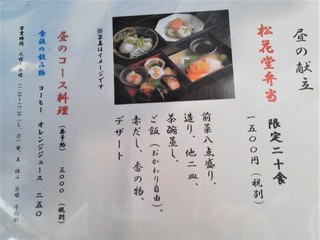 昼の献立
松花堂弁当
限定二十食
一五〇〇円(税別)
前菜八点盛り、
造り、他二皿、
茶碗蒸し、
ご飯(おかわり自由)、
赤だし、香の物、
デザート
※写真はイメージです
昼のコース料理(要予約)三〇〇〇(税別)
食後の飲み物 コーヒー オレンジジュース 二五〇
営業時間